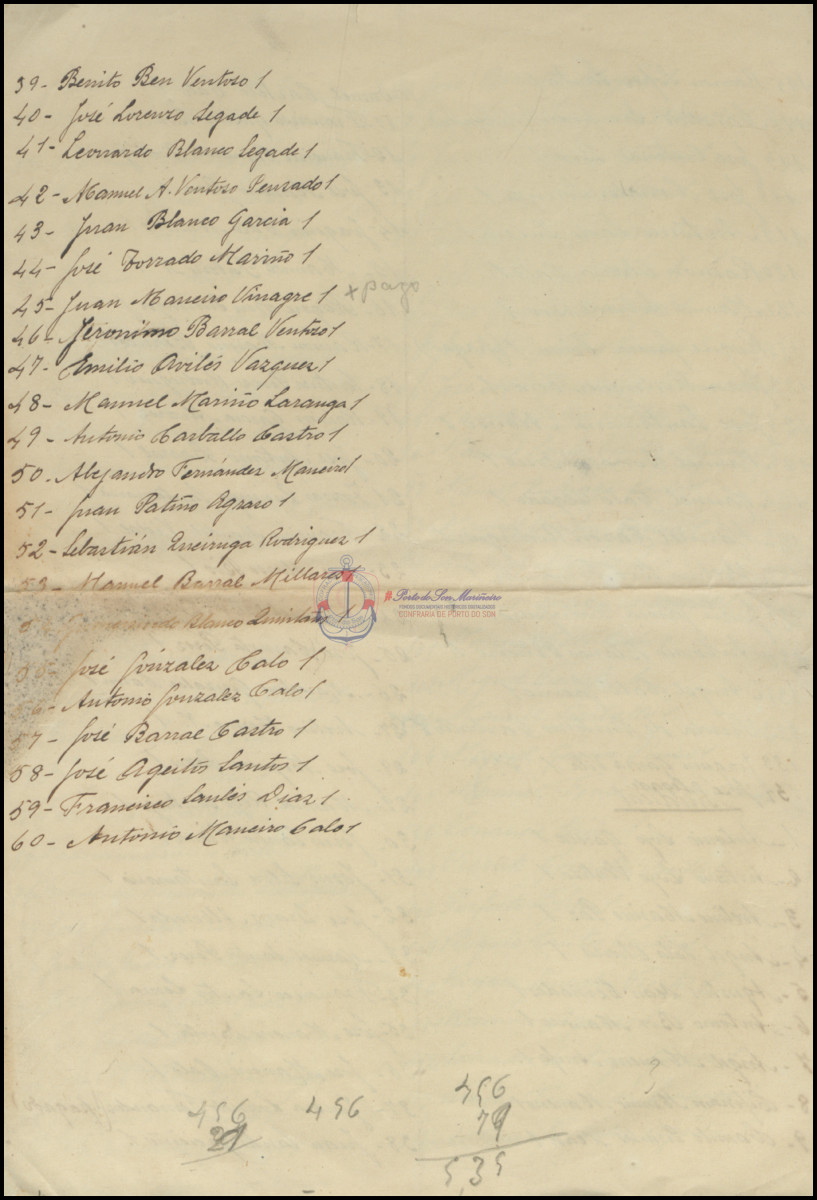 39- Benito Ben Ventoso /
40- José Lorenzo Segade /
41- Leonardo Blanco Segade /
42- Manuel A. Ventoso Pensado /
43- Juan Blanco Garcia /
44- José Torrado Mariño /
45- Juan Maneiro Vinagre / + pago
46- Jeronimo Barral Ventoso /
47- Emilio Avilés Vazquez /
48- Manuel Mariño Laranga /
49- Antonio Carballo Castro /
50- Alejandro Fernández Maneiro /
51- Juan Patiño Agraso /
52- Sebastián Queiruga Rodriguez /
53- Manuel Barral Millares /
Blanco /
José Gonzalez Calo /
56- Antonio Gonzalez Calo /
57- José Barral Castro /
58- José Ageitos Santos /
59- Francisco Saulés Diaz /
60- Antonio Maneiro Calo /
#Porto do Son Mariñeiro
FONDOS DOCUMENTAIS HISTÓRICOS DIXITALIZADOS
CONFRARÍA DE PORTO DO SON
456
456
456
535